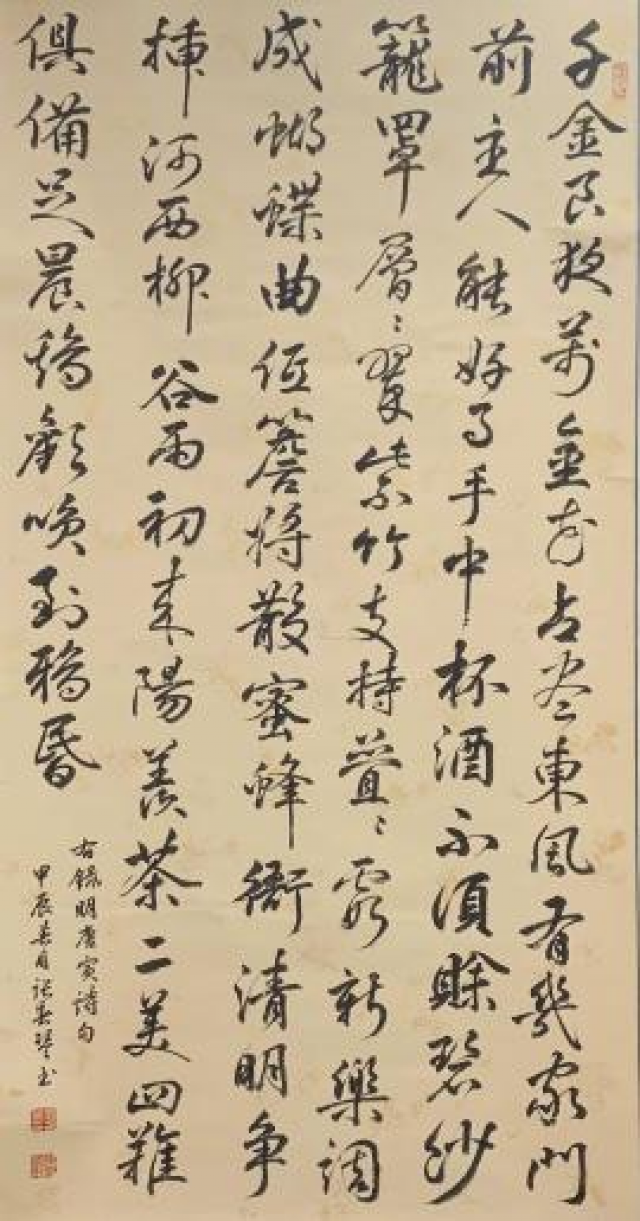 千金良夜萬金花占尽東風有幾家門
前主人能好事手中杯酒不須賒碧紗
籠罩層〻翠紫竹支持疊〻霞新樂調
成蝴蝶曲低簷將散蜜蜂衙清明争
插河西柳谷雨初来陽羨茶二美四難
俱備足晨鷄喚到鴉昏
右録明唐寅詩句
甲辰月張春琴书